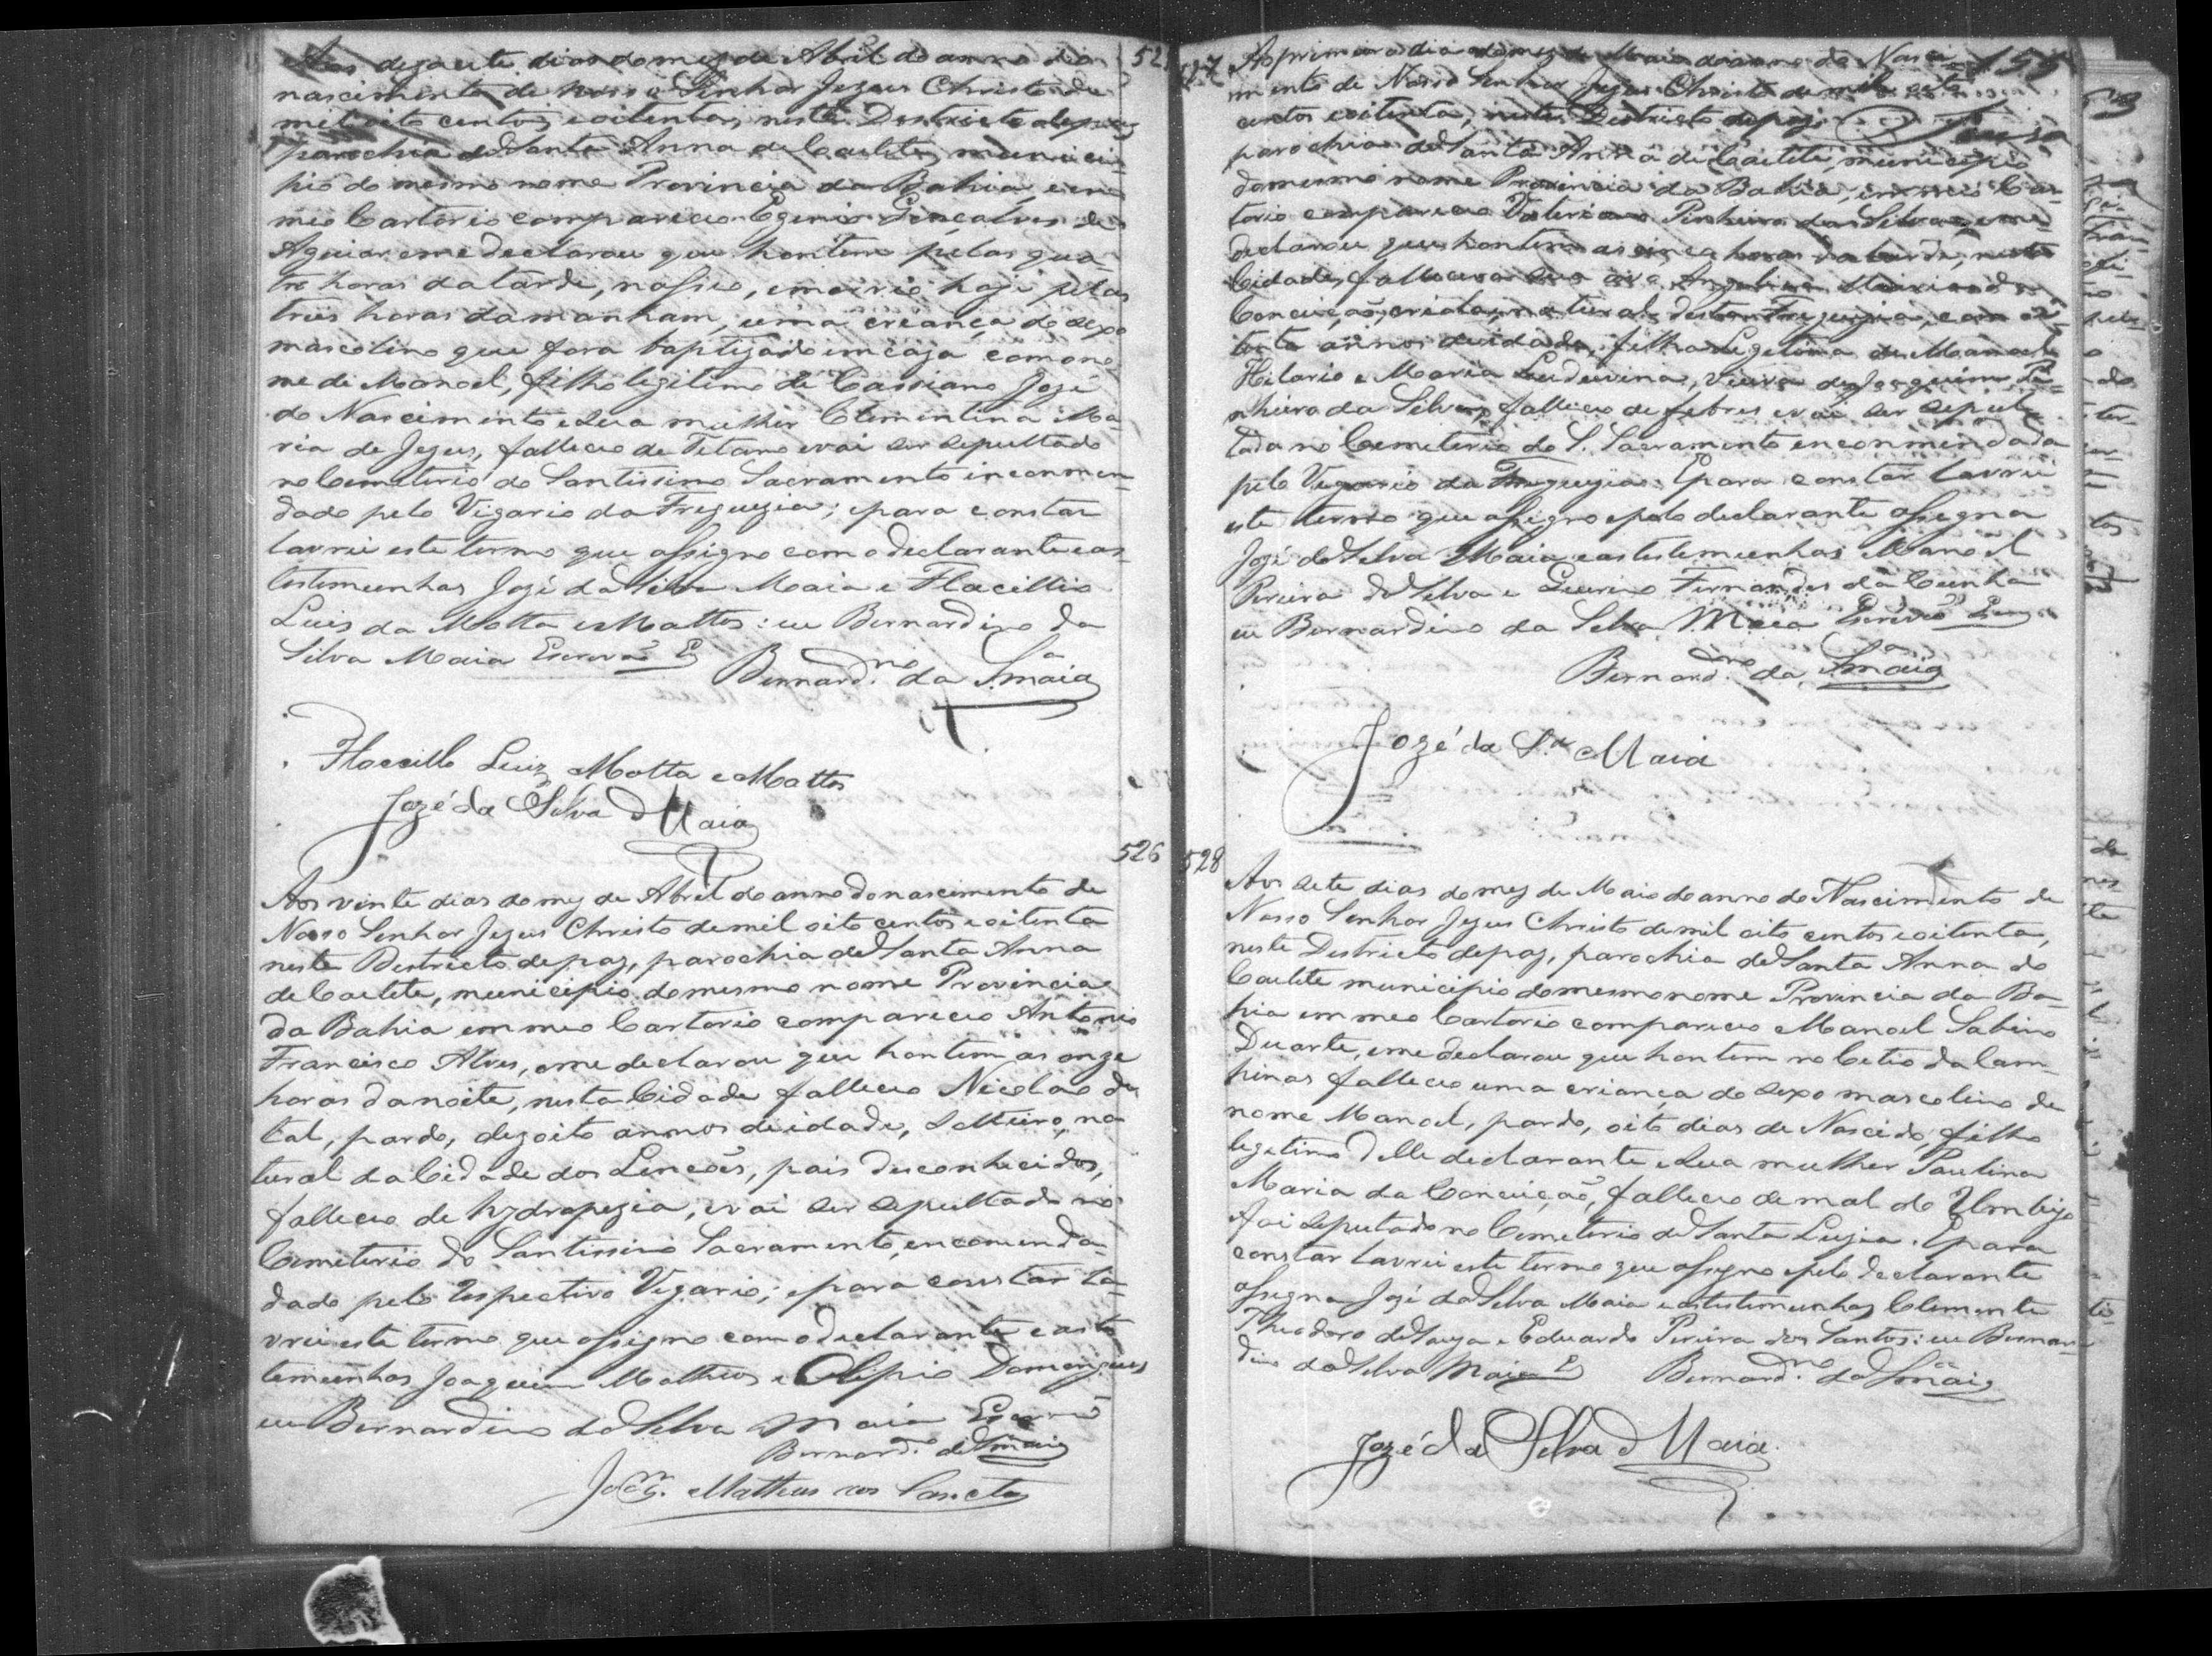 Aos dezasete dias do mez de Abril do anno do
nascimento de Nosso Senhor Jezus Christo de
mil oito centos e oitenta, neste Destricto de paz
parochia de Santa Anna de Caetete, munici-
pio do mesmo nome Provincia da Bahia, em
meo Cartorio compareceo Egenio Gonçalves de
Aguiar e me declarou que hontem pelas qua-
tro horas da tarde, nasceo, e morrio hoje pelas
tres horas da manham, uma creança do sexo
mascolino que fora baptizado em caza com o no-
me de Manoel, filho legitimo de Cassiano Jozé
do Nascimento e sua mulher Clementina Ma-
ria de Jezus, falleceo de Tetano e vai ser sepultado
no Cemeterio do Santissimo Sacramento inconmen-
dado pelo Vigario da Freguezia; e para constar
lavrei este termo que assigno com o declarante e as
testemunhas Jozé da Silva Maia e Flacillio
Luis da Motta e Mattos: eu Bernardino da
Silva Maia Escrevão
Bernard.no da S.a Maia
Flaccillo Luiz Motta e Mattos
Jozé da Silva Maia
526
Aos vinte dias do mez de Abril do anno do nascimento de
Nosso Senhor Jezus Christo de mil oito centos e oitenta
neste Destricto de paz, parochia de Santa Anna
de Caetete, municipio do mesmo nome Provincia
da Bahia em meo Cartorio compareceo Antonio
Francisco Alves, e me declarou que hontem as onze
horas da noite, nesta Cidade falleceo Nicolao de
tal, pardo, dezoito annos de idade, solteiro, na
tural da Cidade dos Lencões, pais desconhecidos,
falleceo de hydropezia, e vai ser sepultado no
Cemeterio do Santissimo Sacramento, encomenda-
dado pelo respectivo Vigario; e para constar la-
vrei este termo que assigno com o declarante e as tes
temunhas Joaquim Matheos e Olipio Domingues
eu Bernardino da Silva Maia Escrevão
Bernard.o da S Maia
Matheus dos Sanctos
527
Ao primeiro dia do mez de Maio do anno do Nasci-
mento de Nosso Senhor Jezus Christo de mil oito
centos e oitenta, neste Destricto de paz
parochia de Santa Anna de Caetete, municipio
do mesmo nome Provincia da Bahia, em meo Car-
torio compareceo Valeriano Pinheiro da Silva e me
declarou que hontem as cinco horas da tarde, nesta
Cidade, fallecera sua avó Angelica Maria da
Conceição, criola, natural desta Freguezia, com oi-
tenta annos de idade, filha legetima de Manoel
Hilario e Maria Luduvina, viuva de Joaquim Pi-
nheiro da Silva, falleceo de febres e vai ser sepul-
tada no Cemeterio do S. Sacramento enconmendada
pelo Vigario da Freguezia: E para constar lavrei
este termo que assigno e pelo declarante assigna
Jozé da Silva Maia e as testemunhas Manoel
Pereira da Silva e Guerino Fernandes da Cunha
eu Bernardino da Silva Maia Escrevão
Bernard.no da S.a Maia
Jozé da S.a Maia
528
Aos sete dias do mez de Maio do anno do Nascimento de
Nosso Senhor Jezus Christo de mil oito centos e oitenta,
neste Destricto de paz, parochia de Santa Anna do
Caetete municipio do mesmo nome Provincia da Ba-
hia em meo Cartorio compareceo Manoel Sabino
Duarte, e me declarou que hontem no Cetio da Cam-
pinas falleceo uma criança do sexo mascolino de
nome Manoel, pardo, oito dias de Nascido, filho
legetimo delle declarante e sua mulher Paulina
Maria da Conceição, falleceo de mal do Umbigo
foi seputado no Cemeterio de Santa Luzia. E para
constar lavrei este termo que assigno e pelo declarante
assigna Jozé da Silva Maia e as testemunhas Clemente
Theodoro de Souza e Eduardo Pereira dos Santos: eu Bernar-
dino da Silva Maia
Bernard.no da S.a Maia
Jozé da Silva Maia